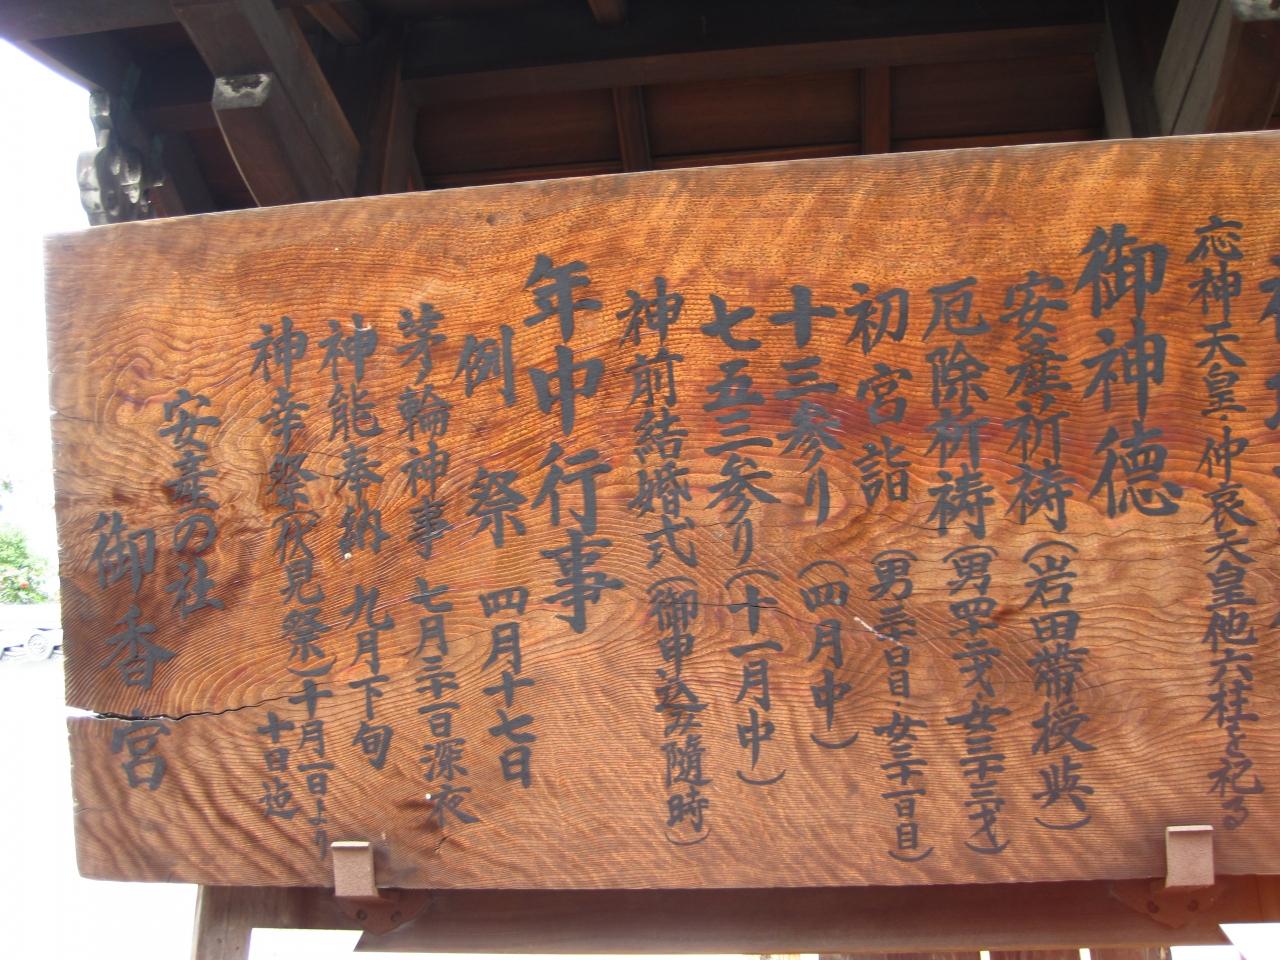 応神天皇・仲哀天皇他六柱を祀る
御神徳
安産祈祷（岩田帯授與）
厄除祈祷（男四十二才・女三十三才）
初宮詣（男三十日目・女三十一日目）
十三参り（四月中）
七五三参り（十一月中）
神前結婚式（御申込み隨時）
年中行事
例祭 四月十七日
茅輪神事 七月三十一日深夜
神能奉納 九月下旬
神幸祭（伏見祭）十月一日より
十日迄
安産の社
御香宮